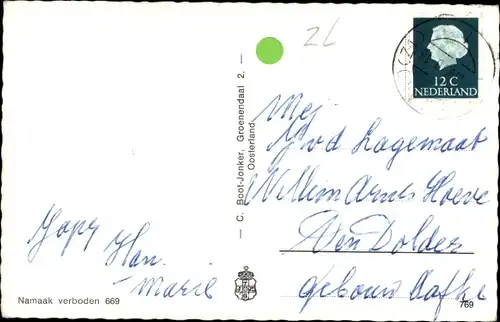 2L
12 C
NEDERLAND
— C. Boot-Jonker, Groenendaal 2, —
Oosterland
Mej
v d Lagemaat
Willem Arnts Hoeve
Den Dolder
gebouw
Jopy Han
Marie
Namaak verboden 669
769